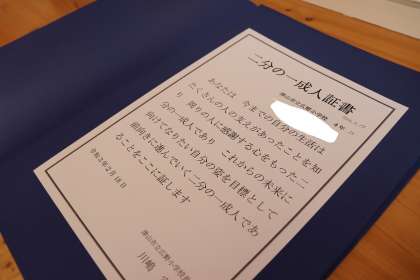 二分の一成人証書
津山市立広野小学校 4年
あなたは 今までの自分の生活は
たくさんの人の支えがあったことを知
り 周りの人に感謝する心をもった二
分の一成人であり これからの未来に
向けてなりたい自分の姿を目標として
前向きに進んでいく二分の一成人であ
ることをここに証します
令和2年2月18日
津山市立広野小学校
川嶋